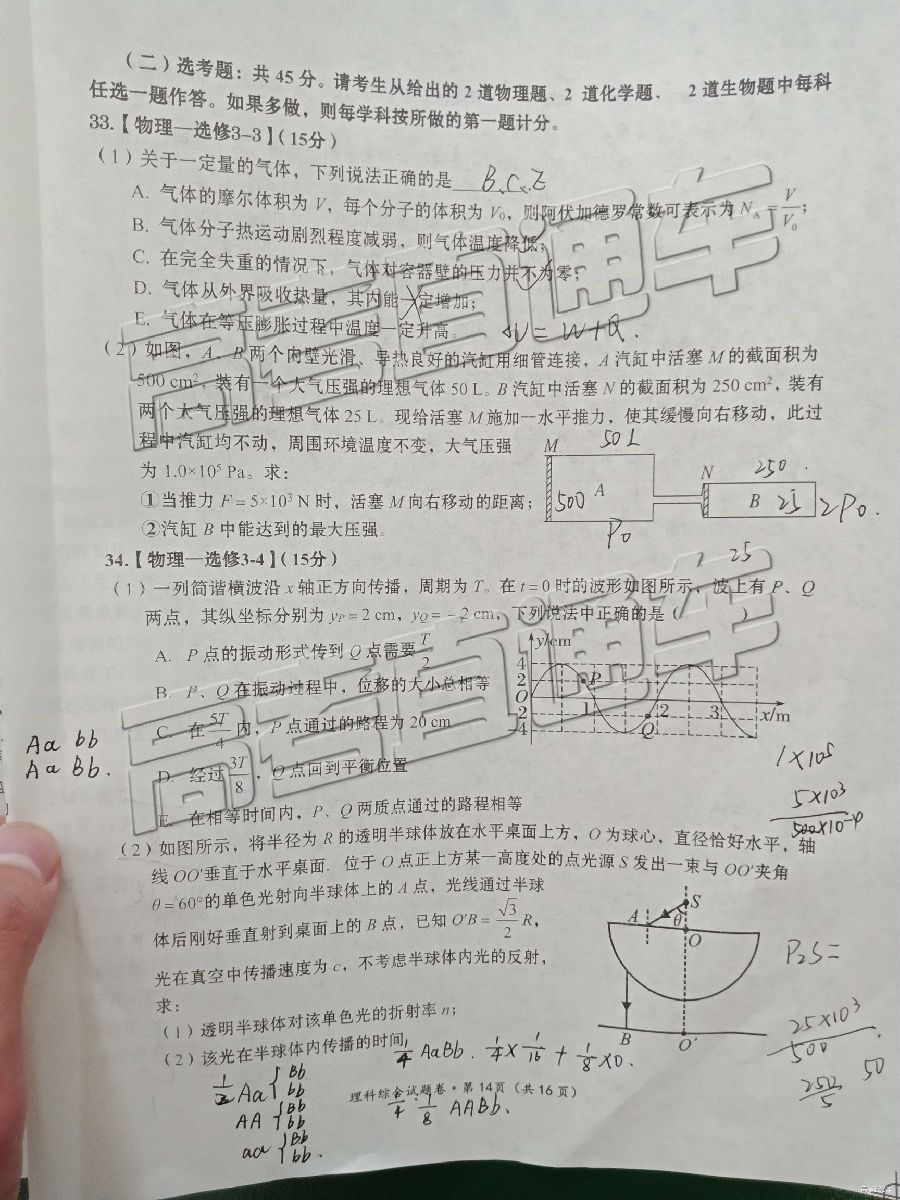 （二）选考题：共 45 分。请考生从给出的 2 道物理题、2 道化学题、 2 道生物题中每科
任选一题作答。如果多做，则每学科按所做的第一题计分。
33.【物理—选修3-3】（15分）
（1）关于一定量的气体，下列说法正确的是 B、C、E
A. 气体的摩尔体积为 V，每个分子的体积为 V₀，则阿伏加德罗常数可表示为 N_A = V/V₀；
B. 气体分子热运动剧烈程度减弱，则气体温度降低；
C. 在完全失重的情况下，气体对容器壁的压力并不为零；
D. 气体从外界吸收热量，其内能一定增加；
E. 气体在等压膨胀过程中温度一定升高。 ΔU = W+Q .
（2）如图，A、B 两个内壁光滑、导热良好的汽缸用细管连接，A 汽缸中活塞 M 的截面积为
500 cm²，装有一个大气压强的理想气体 50 L。B 汽缸中活塞 N 的截面积为 250 cm²，装有
两个大气压强的理想气体 25 L。现给活塞 M 施加一水平推力，使其缓慢向右移动，此过
程中汽缸均不动，周围环境温度不变，大气压强
为 1.0×10⁵ Pa。求：
①当推力 F＝5×10³ N 时，活塞 M 向右移动的距离；
②汽缸 B 中能达到的最大压强。
M 50 L N 250
500 A B 25 2P₀.
P₀
25
34.【物理—选修3-4】（15分）
（1）一列简谐横波沿 x 轴正方向传播，周期为 T。在 t＝0 时的波形如图所示，波上有 P、Q
两点，其纵坐标分别为 y_P＝2 cm，y_Q＝－2 cm，下列说法中正确的是（ ）
A. P 点的振动形式传到 Q 点需要 T/2
B. P、Q 在振动过程中，位移的大小总相等
C. 在 5T/4 内，P 点通过的路程为 20 cm
D. 经过 3T/8，Q 点回到平衡位置
E. 在相等时间内，P、Q 两质点通过的路程相等
y/cm
4
2 P
O 1 2 3 x/m
-2 Q
-4
Aa bb
Aa Bb.
1×10⁵
5×10³
500×10⁻⁴
（2）如图所示，将半径为 R 的透明半球体放在水平桌面上方，O 为球心，直径恰好水平，轴
线 OO′垂直于水平桌面．位于 O 点正上方某一高度处的点光源 S 发出一束与 OO′夹角
θ＝60°的单色光射向半球体上的 A 点，光线通过半球
体后刚好垂直射到桌面上的 B 点，已知 O′B＝√3/2 R，
光在真空中传播速度为 c，不考虑半球体内光的反射，
求：
（1）透明半球体对该单色光的折射率 n；
（2）该光在半球体内传播的时间
S
A θ
O
B O′
P₂S=
25×10³
500
250
5
50
1/4 AaBb . 1/4 × 1/16 + 1/8 ×0.
1/2 Aa { Bb
bb
AA { Bb
bb
aa { Bb
bb .
1/4 · 1/8 AABb、
理科综合试题卷·第 14页（共 16 页）
高考直通车
高考直通车